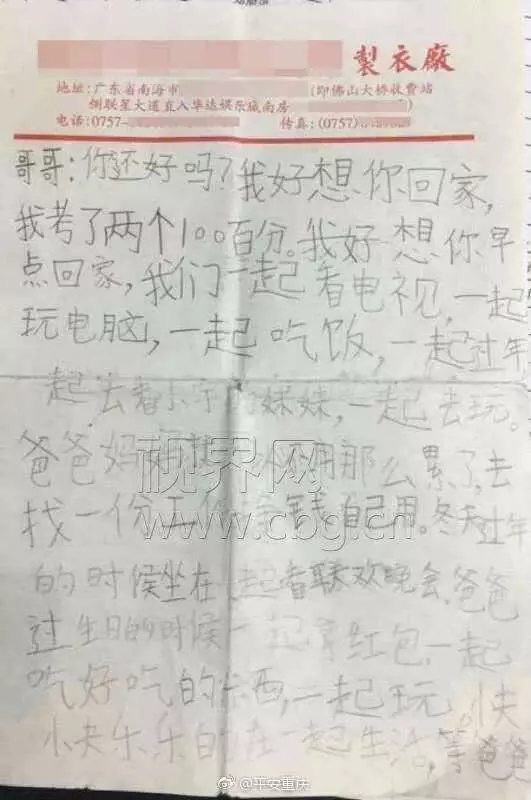 製衣廠
地址:广东省南海市 (即佛山大桥收费站
侧联星大道直入华达娱乐城南房
电话:0757- 传真:(0757)
哥哥:你还好吗?我好想你回家,
我考了两个100百分。我好想你早
点回家,我们一起看电视,一起
玩电脑,一起吃饭,一起过年
起去看小宇的妹妹,一起去玩。
爸爸妈妈 不用那么累了,去
找一份工作 钱自己用。冬天过年
的时候坐在一起看联欢晚会,爸爸
过生日的时候一起拿红包,一起
吃好吃的东西,一起玩。快
小快乐乐的在一起生活,等爸爸
视界网
www.cbg.cn
@平安重庆